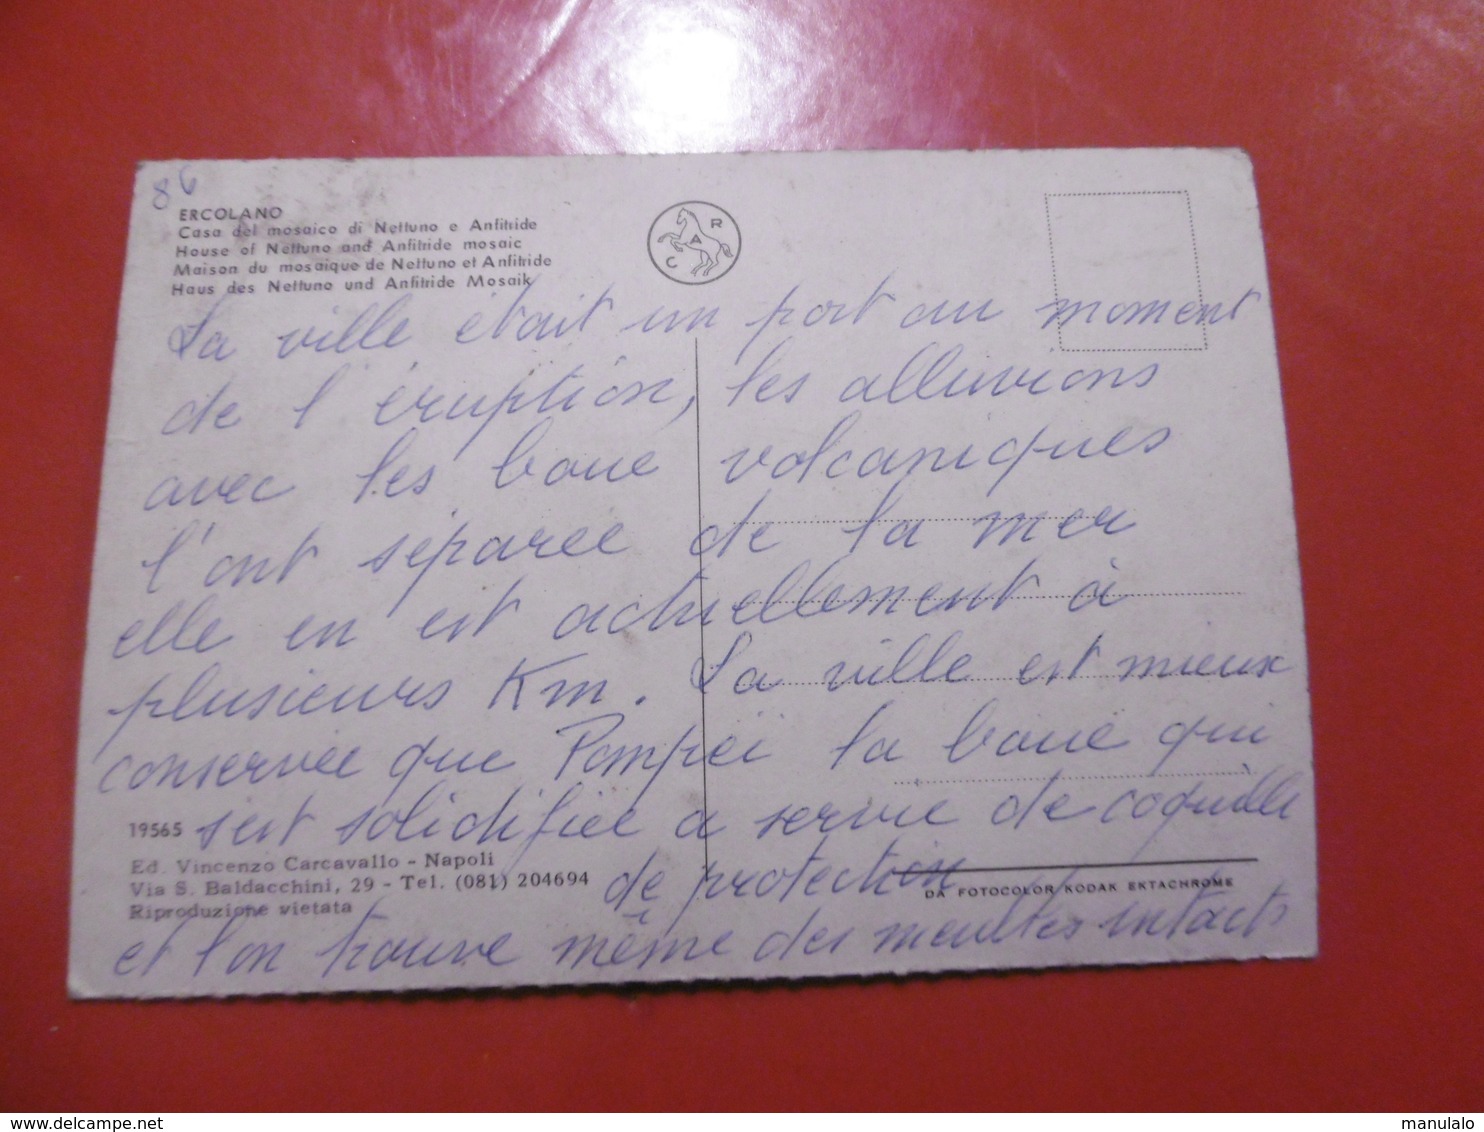 86
ERCOLANO
Casa del mosaico di Nettuno e Anfitride
House of Nettuno and Anfitride mosaic
Maison du mosaique de Nettuno et Anfitride
Haus des Nettuno und Anfitride Mosaik
C A R
La ville était un port au moment
de l'éruption, les alluvions
avec les boue volcaniques
l'ont séparée de la mer
elle en est actuellement à
plusieurs Km. La ville est mieux
conservée que Pompeï la boue qui
s'est solidifiée a servie de coquille
de protection
et l'on trouve même des meubles intacts
19565
Ed. Vincenzo Carcavallo - Napoli
Via S. Baldacchini, 29 - Tel. (081) 204694
Riproduzione vietata
DA FOTOCOLOR KODAK EKTACHROME
delcampe.net
manulalo